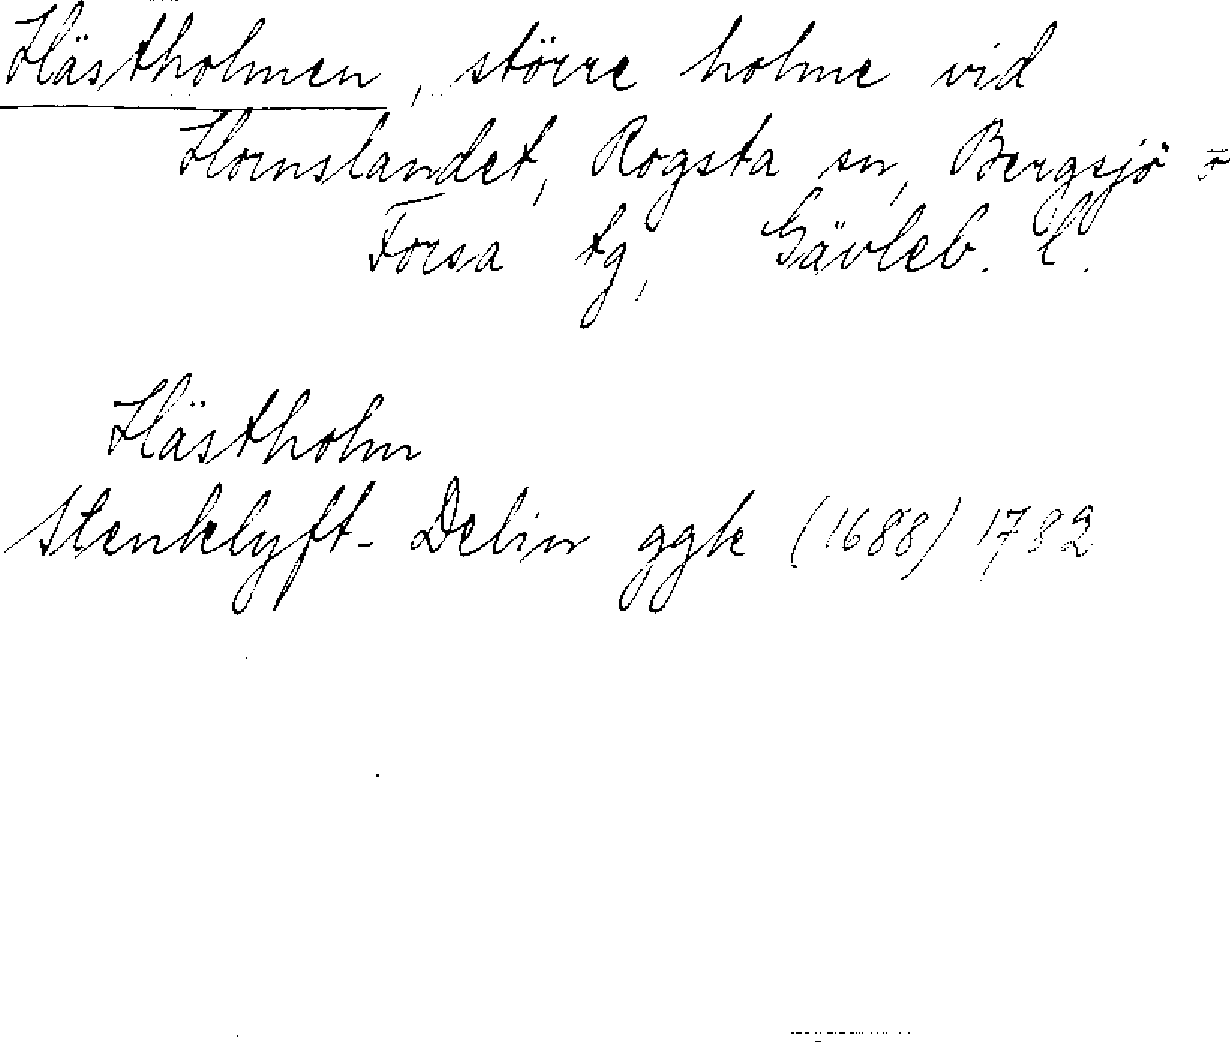 Hästholmen, större holme vid
Hornslandet, Rogsta sn, Bergsjö o
Forsa tg, Gävleb. l.
Hästholm
Stenklyft-Delin ggk (1688) 1782